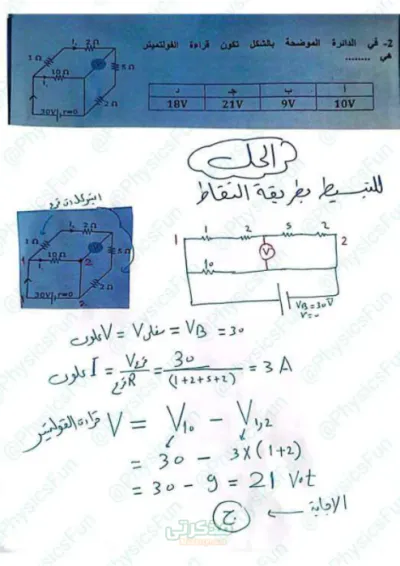 2- في الدائرة الموضحة بالشكل تكون قراءة الفولتميتر
هي ........
أ ب جـ د
10V 9V 21V 18V
1Ω 2Ω
10Ω 5Ω
2Ω
30V, r=0
الحل
للتبسيط بطريقة النقاط
1Ω 2Ω
10Ω 5Ω
2Ω
30V, r=0
1 1 2 5 2 2
V
10
VB=30V
r=0
V علوى = V سفلى = VB = 30
I علوى = V فرع / R فرع = 30 / (1+2+5+2) = 3 A
قراءة الفولتميتر V = V10 - V1,2
= 30 - 3x(1+2)
= 30 - 9 = 21 Volt
الاجابة ج
مذكرتى
@PhysicsFun